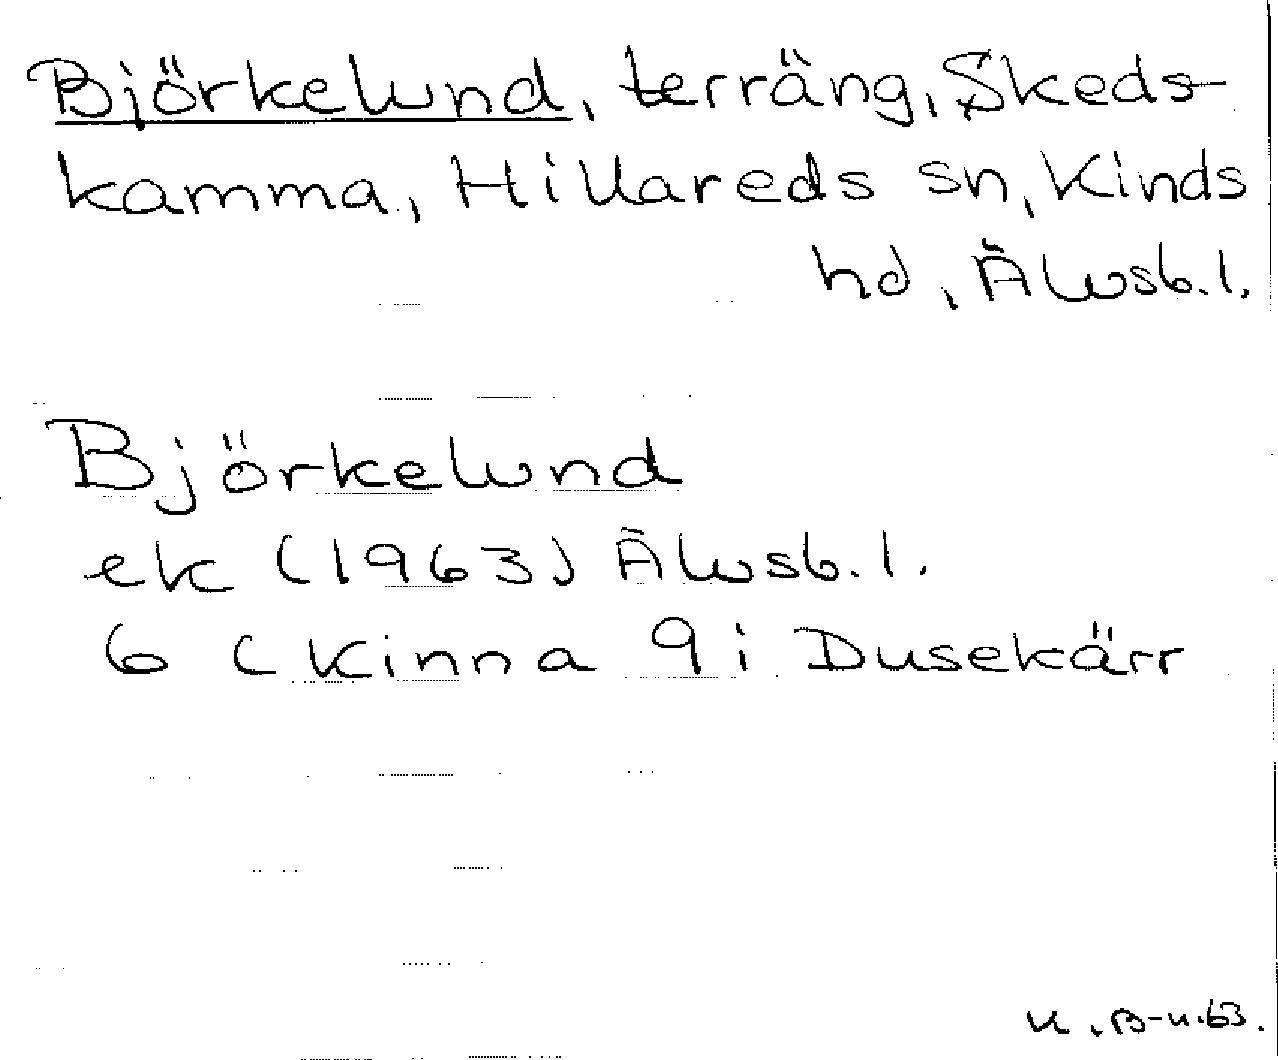 Björkelund, terräng, Skeds-
kamma, Hillareds sn, Kinds
hd, Älvsb.l.
Björkelund
ek (1963) Älvsb.l.
6 (Kinna 9 i Dusekärr
K.B-n.63.